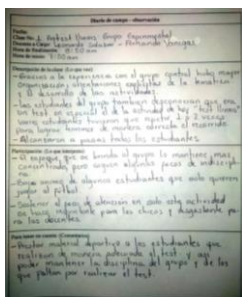 Diario de campo - observación
Fecha:
Clase No. 1 Agility Test Grupo Experimental
Docente a Cargo: Leonardo Salazar - Fernando Vanegas
Hora de Finalización: 8:50 am
Hora de inicio: 7:00 am
Descripción de la clase (Lo que veo)
- Gracias a la experiencia con el grupo control hubo mayor
organización y explicaciones de la temática
y el desarrollo de las actividades.
- los estudiantes del grupo también desconocían que era
un test en especial el de la actividad de hoy
varios estudiantes tuvieron que repetir 2 y 3 veces
para lograr terminar de manera adecuada el recorrido.
- Alcanzaron a pasar todos los estudiantes.
Participación (Lo que interpreto)
- El espacio que se brinda al grupo lo mantiene más
concentrado, pero siguen algunos focos de indisciplina
- Enojo de algunos estudiantes que solo quieren
jugar al fútbol.
- Sostener el foco de atención en solo esta actividad
se hace importante para los chicos y desgastante para
los docentes.
Para tener en cuenta (Comentarios)
- Prestar material deportivo a los estudiantes que
realicen de manera adecuada el test y así
poder mantener la disciplina del grupo y de los
que faltan por realizar el test.